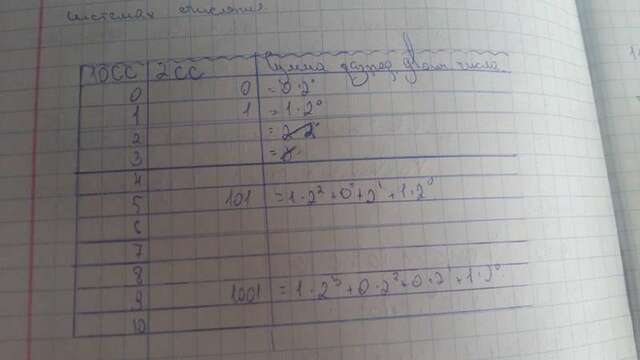 системах счисления
10СС 2СС Сумма разряд двоич числа
0 0 = 0·2⁰
1 1 = 1·2⁰
2 =
3 =
4
5 101 = 1·2² + 0 + 2¹ + 1·2⁰
6
7
8
9 1001 = 1·2³ + 0·2² + 0·2¹ + 1·2⁰
10